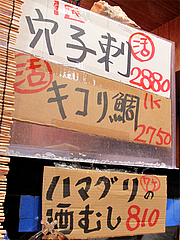 穴子刺 活 2880
活 キコリ鯛 1K 2750
ハマグリの
酒むし 810